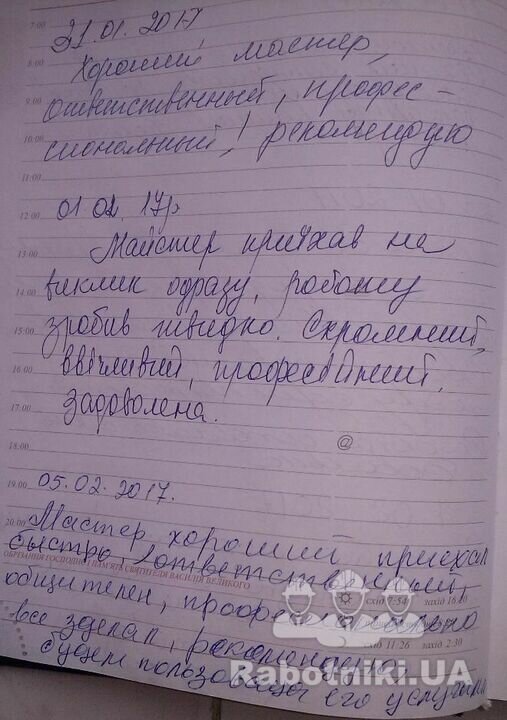 7:00
31.01.2017
8:00
Хороший мастер,
9:00
ответственный, профес-
10:00
сиональный! рекомендую
11:00
12:00
01.02.17р.
13:00
Майстер приїхав на
14:00
виклик одразу, роботу
15:00
зробив швидко. Скромний,
16:00
ввічливий, професійний.
17:00
Задоволена.
18:00
@
19:00
05.02.2017.
20:00
Мастер хороший приехал
быстро, ответственный,
ОБРІЗАННЯ ГОСПОДНЄ ПАМ'ЯТЬ СВЯТИТЕЛЯ ВАСИЛІЯ ВЕЛИКОГО
схід 7:54 захід 16:
общителен, професионально
схід 11:26 захід 2:30
все зделал, рекомендую
будем ползоваться его услугами
Rabotniki.UA